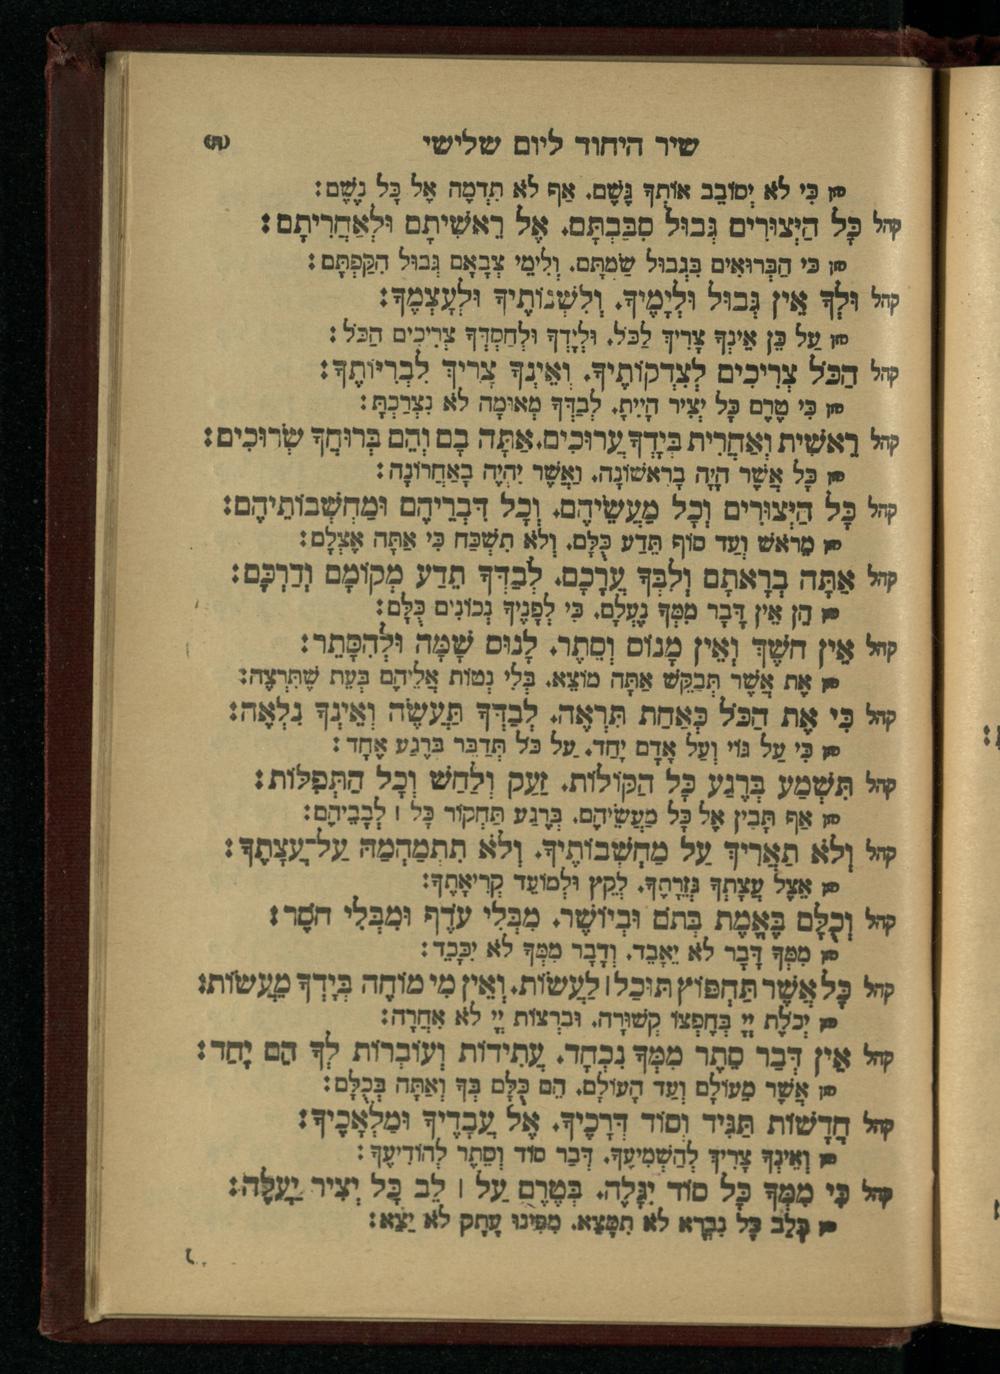 שיר היחוד ליום שלישי
חזן כִּי לֹא יְסוֹבֵב אוֹתְךָ גָּשֶׁם. אַף לֹא תִדְמֶה אֶל כָּל נָשֶׁם:
קהל כָּל הַיְצוּרִים גְּבוּל סִבַּבְתָּם. אֶל רֵאשִׁיתָם וּלְאַחֲרִיתָם:
חזן כִּי הַבְּרוּאִים בִּגְבוּל שַׂמְתָּם. וְלִימֵי צְבָאָם גְּבוּל הִקַּפְתָּם:
קהל וּלְךָ אֵין גְּבוּל וּלְיָמֶיךָ. וְלִשְׁנוֹתֶיךָ וּלְעָצְמֶךָ:
חזן עַל כֵּן אֵינְךָ צָרִיךְ לַכֹּל. וּלְיָדְךָ וּלְחַסְדְּךָ צְרִיכִים הַכֹּל:
קהל הַכֹּל צְרִיכִים לְצִדְקוֹתֶיךָ. וְאֵינְךָ צָרִיךְ לִבְרִיּוֹתֶךָ:
חזן כִּי טֶרֶם כָּל יְצִיר הָיִיתָ. לְבַדְּךָ מְאוּמָה לֹא נִצְרַכְתָּ:
קהל רֵאשִׁית וְאַחֲרִית בְּיָדְךָ עֲרוּכִים. אַתָּה בָם וְהֵם בְּרוּחֲךָ שְׂרוּכִים:
חזן כָּל אֲשֶׁר הָיָה בָרִאשׁוֹנָה. וַאֲשֶׁר יִהְיֶה בָאַחֲרוֹנָה:
קהל כָּל הַיְצוּרִים וְכָל מַעֲשֵׂיהֶם. וְכָל דִּבְרֵיהֶם וּמַחְשְׁבוֹתֵיהֶם:
חזן מֵרֹאשׁ וְעַד סוֹף תֵּדַע כֻּלָּם. וְלֹא תִשְׁכַּח כִּי אַתָּה אֶצְלָם:
קהל אַתָּה בְרָאתָם וְלִבְּךָ עֲרָכָם. לְבַדְּךָ תֵדַע מְקוֹמָם וְדַרְכָּם:
חזן הֵן אֵין דָּבָר מִמְּךָ נֶעְלָם. כִּי לְפָנֶיךָ נְכוֹנִים כֻּלָּם:
קהל אֵין חֹשֶׁךְ וְאֵין מָנוֹס וְסֵתֶר. לָנוּס שָׁמָּה וּלְהִסָּתֵר:
חזן אֶת אֲשֶׁר תְּבַקֵּשׁ אַתָּה מוֹצֵא. בְּלִי נְטוֹת אֲלֵיהֶם בְּעֵת שֶׁתִּרְצֶה:
קהל כִּי אֶת הַכֹּל כְּאַחַת תִּרְאֶה. לְבַדְּךָ תַּעֲשֶׂה וְאֵינְךָ נִלְאֶה:
חזן כִּי עַל גּוֹי וְעַל אָדָם יָחַד. עַל כֹּל תְּדַבֵּר בְּרֶגַע אֶחָד:
קהל תִּשְׁמַע בְּרֶגַע כָּל הַקּוֹלוֹת. זַעַק וְלַחַשׁ וְכָל הַתְּפִלּוֹת:
חזן אַף תָּבִין אֶל כָּל מַעֲשֵׂיהֶם. בְּרֶגַע תַּחְקוֹר כָּל ׀ לְבָבֵיהֶם:
קהל וְלֹא תַאֲרִיךְ עַל מַחְשְׁבוֹתֶיךָ. וְלֹא תִתְמַהְמַהּ עַל־עֲצָתֶךָ:
חזן אֵצֶל עֲצָתְךָ גְּזֵרָתֶךָ. לְקֵץ וּלְמוֹעֵד קְרִיאָתֶךָ:
קהל וְכֻלָּם בֶּאֱמֶת בְּתֹם וּבְיוֹשֶׁר. מִבְּלִי עֹדֶף וּמִבְּלִי חֹסֶר:
חזן מִמְּךָ דָּבָר לֹא יֵאָבֵד. וְדָבָר מִמְּךָ לֹא יִכָּבֵד:
קהל כָּל אֲשֶׁר תַּחְפּוֹץ תּוּכַל ׀ לַעֲשׂוֹת. וְאֵין מִי מוֹחֶה בְּיָדְךָ מֵעֲשׂוֹת:
חזן יְכֹלֶת יְיָ בְּחֶפְצוֹ קְשׁוּרָה. וּבִרְצוֹת יְיָ לֹא אִחֵרָה:
קהל אֵין דְּבַר סֵתֶר מִמְּךָ נִכְחָד. עֲתִידוֹת וְעוֹבְרוֹת לְךָ הֵם יָחַד:
חזן אֲשֶׁר מֵעוֹלָם וְעַד הָעוֹלָם. הֵם כֻּלָּם בְּךָ וְאַתָּה בְכֻלָּם:
קהל חֲדָשׁוֹת תַּגִּיד וְסוֹד דְּרָכֶיךָ. אֶל עֲבָדֶיךָ וּמַלְאָכֶיךָ:
חזן וְאֵינְךָ צָרִיךְ לְהַשְׁמִיעֶךָ. דְּבַר סוֹד וְסֵתֶר לְהוֹדִיעֶךָ:
קהל כִּי מִמְּךָ כָּל סוֹד יִגָּלֶה. בְּטֶרֶם עַל ׀ לֵב כָּל יְצִיר יַעֲלֶה:
חזן בְּלֵב כָּל נִבְרָא לֹא תִמָּצֵא. מִפִּינוּ עָתָק לֹא יֵצֵא: